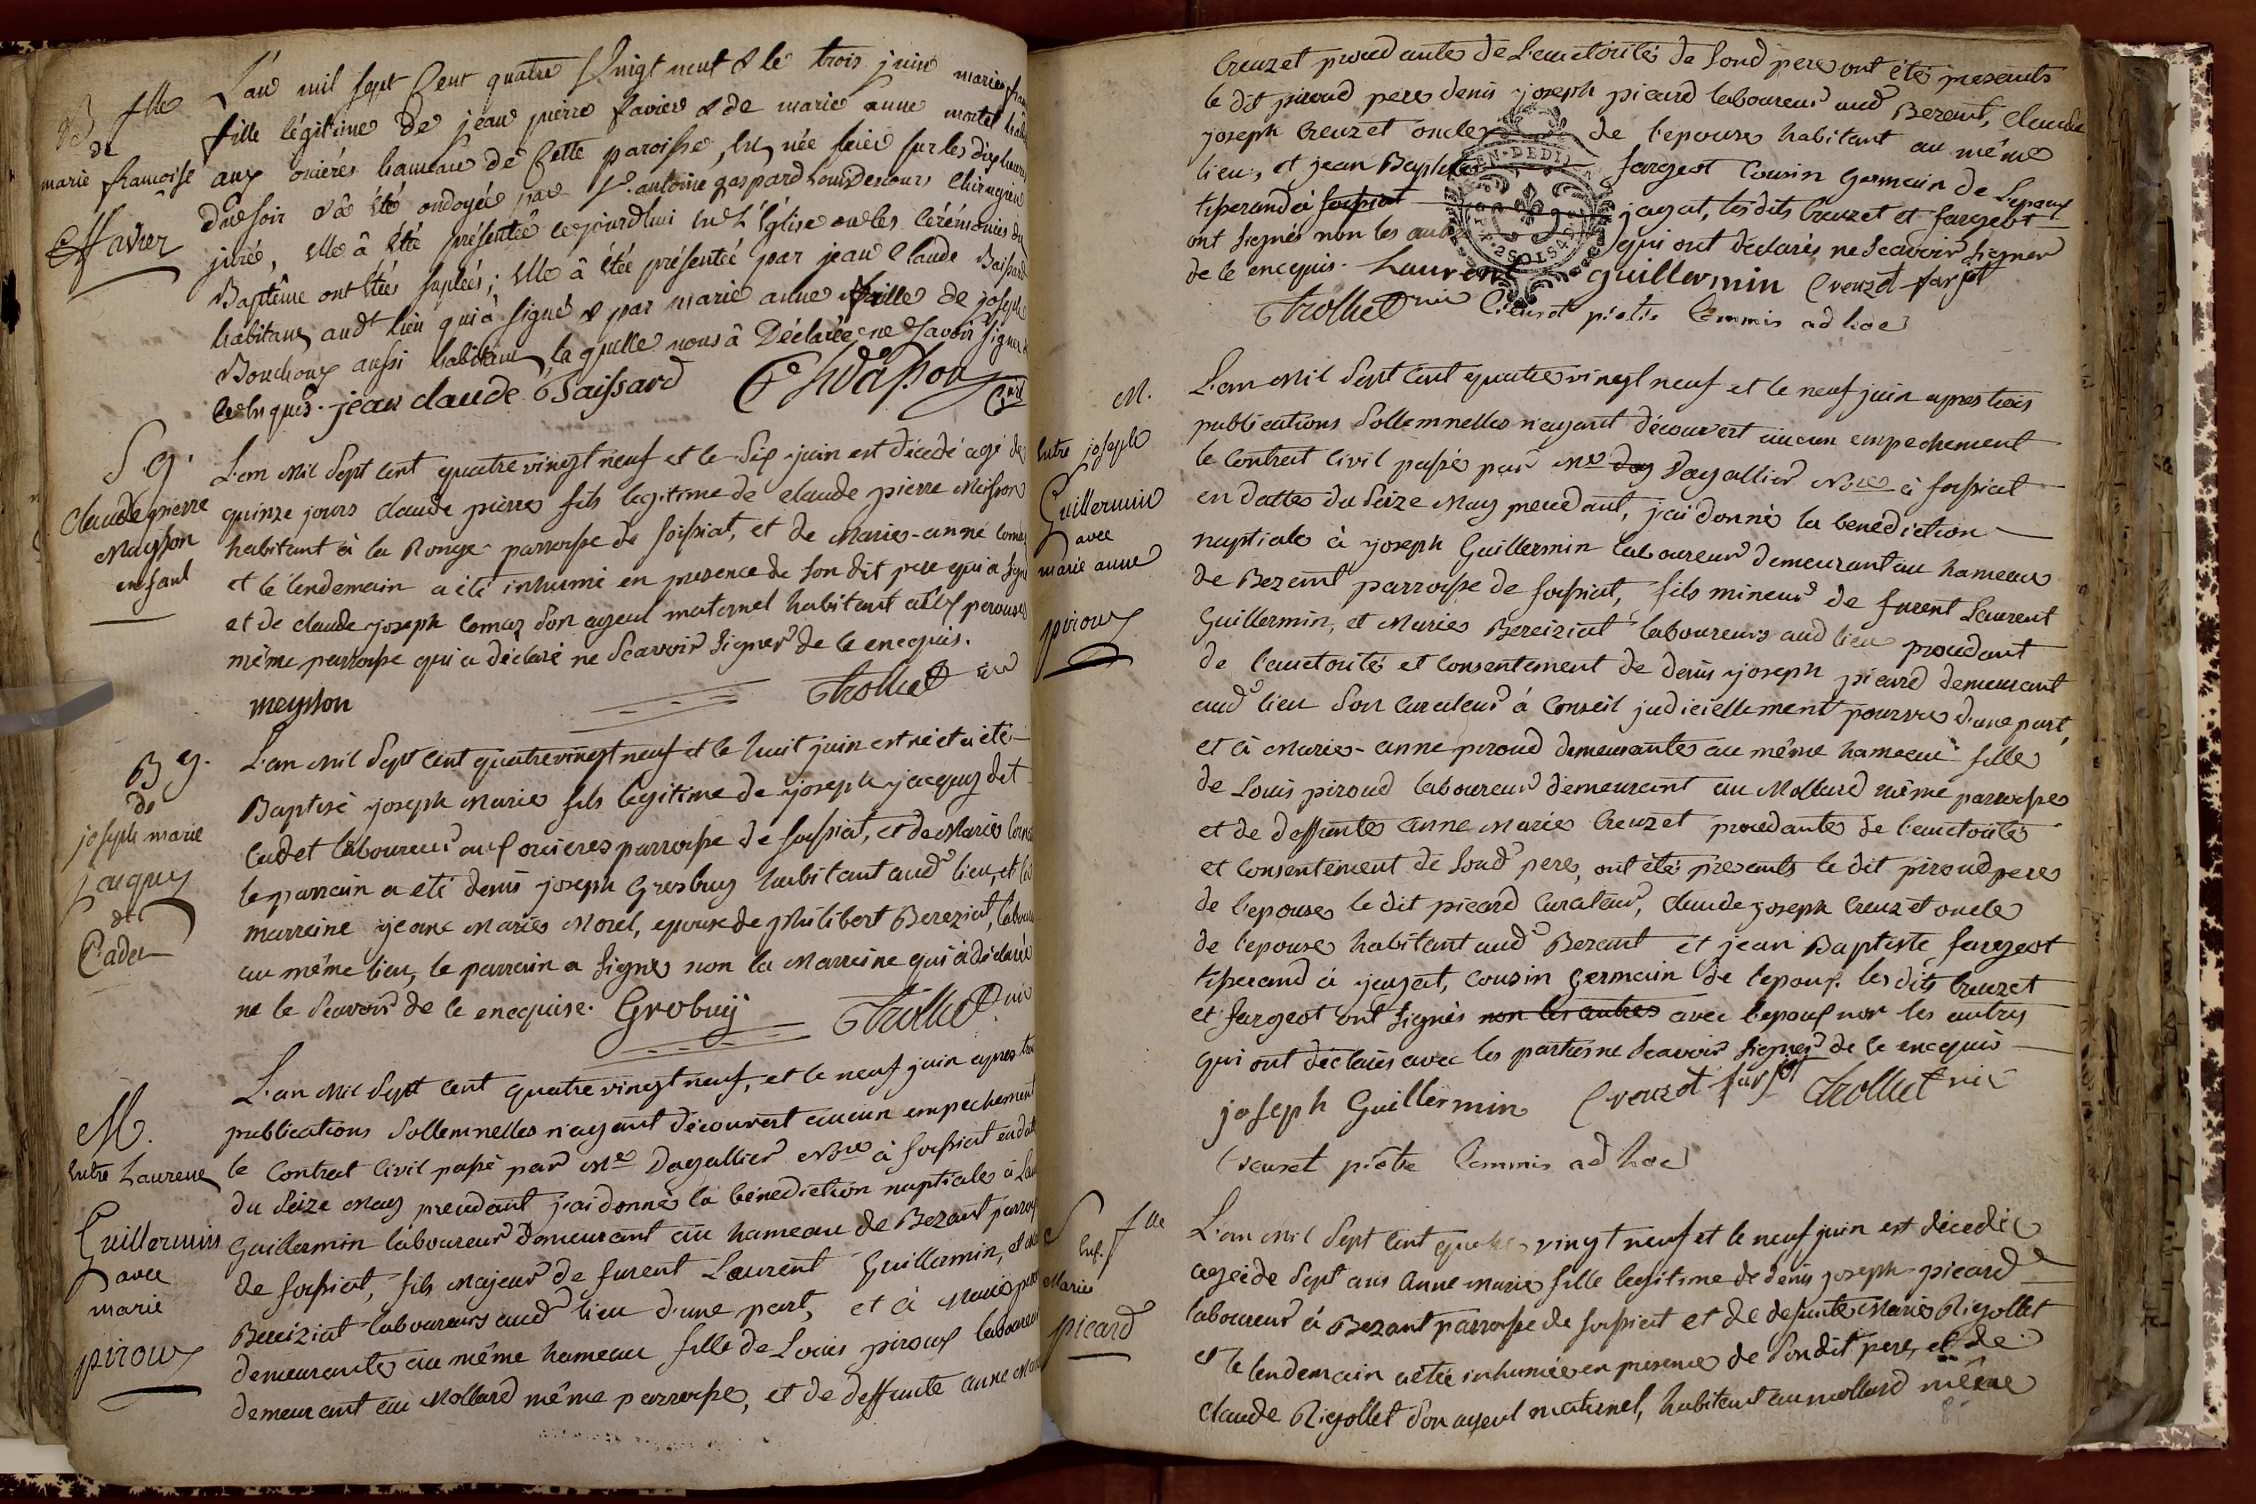 B flle
de
marie francoise
favier
L'an mil sept Cent quatre Vingt neuf & le trois juin marie
fille légitime de jean pierre favier & de marie anne morel
aux oniéres hameau de Cette paroisse, née hier sur les dix heures
du soir & a été ondoyée par Sr. antoine gaspard Louis Descours Chirurgien
juré, elle â été présentée ce jourd'hui en L'Église ou les cérémonies du
Baptême ont étées suplées; elle â étée présentée par jean Claude Baissard
habitant audt lieu qui â signé & par marie anne fille de joseph
Bouchoux aussi habitant, laquelle nous â Déclarée ne savoir signer
de ce enquis. jean claude Baissard
S g.
Claude pierre
Maysson
enfant
L'an Mil Sept cent quatre vingt neuf et le Six juin est décédé agé de
quinze jours claude pierre fils legitime de claude pierre Meisson
habitant à la Ronge parroisse de foissiat, et de Marie-anne Comaz
et le lendemain a été inhumé en presence de son dit pere qui a signé
et de claude joseph Comaz son ayeul maternel habitant aux perouses
même parroisse qui a déclaré ne Scavoir signer de ce enequis.
meysson Chollet vic
B g.
de
joseph marie
jacquy
dt
Cadet
L'an Mil Sept cent quatre vingt neuf et le huit juin est né et a été
Baptisé joseph Marie fils legitime de joseph jacquy dit
Cadet laboureur aux onieres parroisse de foissiat, et de Marie
le parrain a été denis joseph Grosbuy habitant aud lieu, et la
marraine jeanne Marie Morel, epouse de philibert Bereziat,
au même lieu, le parrain a signé non la Marraine qui a déclarée
ne le Scavoir de ce enequise. Grobuy Chollet vic
M.
Entre Laurent
Guillermin
avec
marie
piroux
L'an Mil Sept cent quatre vingt neuf, et le neuf juin apres trois
publications Sollemnelles n'ayant découvert aucun empechement
le Contrat Civil passé par Me Dagallier Nre à foissiat en datte
du Seize May precedant j'ai donné la bénédiction nuptiale à
Guillermin laboureur demeurant au hameau de Bezant parroisse
de foissiat, fils Majeur de furent Laurent Guillermin, et de
Bereiziat laboureurs aud lieu d'une part, et à Marie
demeurante au même hameau fille de Louis piroux laboureur
demeurant au Mollard même parroisse, et de deffunte anne Marie
Creuzet procedante de L'auctorité de Sond pere ont été presents
le dit piroud pere denis joseph picard laboureur aud Bezant, Claude
joseph Creuzet oncle de l'epouse habitant au même
lieu, et jean Baptiste fargeot Cousin Germain de L'epoux
tisserand à foissiat jayat, les dits Creuzet et fargeot
ont signés non les autres qui ont déclarés ne Scavoir signer
de ce enequis. Laurent guillermin Creuzet farjot
Chollet vic Creuset prêtre Commis ad hoc
M.
Entre joseph
Guillermin
avec
marie anne
piroux
L'an Mil Sept cent quatre vingt neuf et le neuf juin apres trois
publications Sollemnelles n'ayant découvert aucun empechement
le Contrat Civil passé par Me dag Dagallier Nre à foissiat
en datte du Seize May precedant, j'ai donné la benediction
nuptiale à joseph Guillermin laboureur demeurant au hameau
de Bezant parroisse de foissiat, fils mineur de furent Laurent
Guillermin, et Marie Bereiziat laboureurs aud lieu procedant
de l'auctorité et Consentement de denis joseph picard demeurant
aud lieu Son Curateur à Conseil judiciellement pourvu d'une part,
et à Marie-anne piroud demeurante au même hameau fille
de Louis piroud laboureur demeurant au Mollard même parroisse
et de deffunte anne Marie Creuzet procedante de l'auctorité
et Consentement de Sond pere, ont été presents le dit piroud pere
de l'epouse le dit picard Curateur, claude joseph Creuzet oncle
de l'epouse habitant aud Bezant et jean Baptiste fargeot
tisserand à jayat, Cousin Germain de l'epoux les dits Creuzet
et fargeot ont signés non les autres avec l'epoux non les autres
qui ont déclarés avec les parties ne Scavoir signer de ce enequis
joseph Guillermin Creuzet farjot Chollet vic
Creuset prêtre Commis ad hoc
S flle
Marie
picard
L'an Mil Sept cent quatre vingt neuf et le neuf juin est décedée
agée de Sept ans Anne Marie fille legitime de denis joseph picard
laboureur à Bezant parroisse de foissiat et de defunte Marie Rigollet
et le lendemain a été inhumée en presence de Son dit pere, et de
claude Rigollet Son ayeul maternel, habitant au mollard même